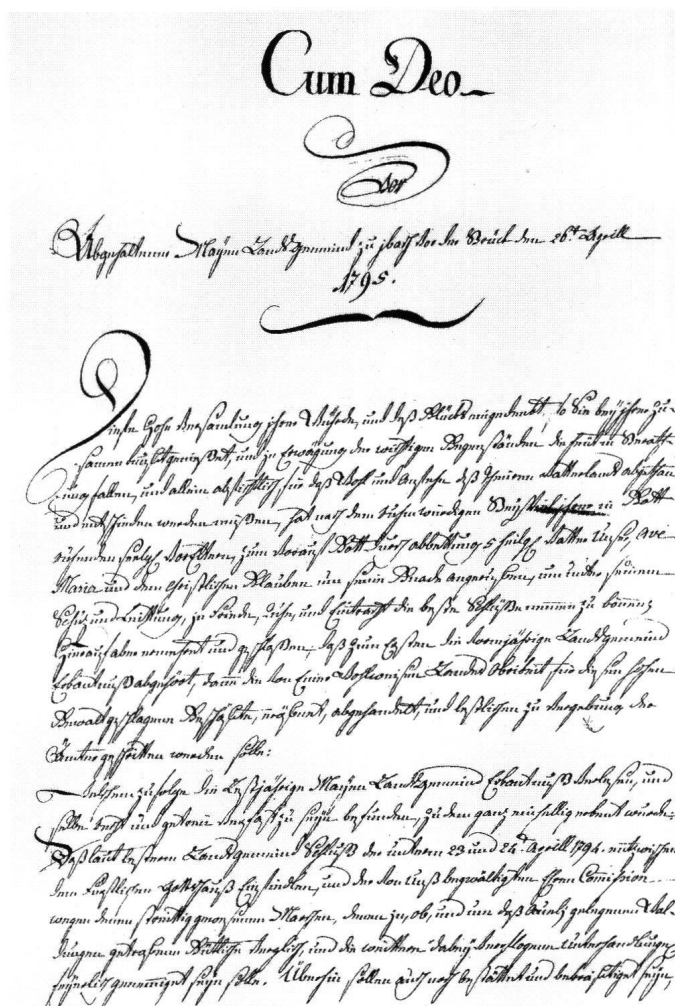 Cum Deo
Der
Abgehaltenen Mayen Landtsgemeind zu jbach vor der Bruck den 26.t Aprill
1795.
Diese Hohe Versamlung jhrer Würde, und deß Glücks eingedenkt, so Sie bey jhrem Zu-
und zu Erwägung der wichtigen Gegenständen die heüt in Berath-
ung fallen, und allein abſichtlich, für daß Wohl und Ansehn deß Theüren Vatterlands
und entscheiden werden müßen, hat nach dem in Gott
ruhenden seelig Voreltern, zum Voraus Gott durch abbettung 5 heilg Vatter Unser, Ave
Maria und dem christlichen Glauben um seine Gnade angeruffen, um unter seinem
Schuz und Leittung, zu Friede, Ruhe, und Eintracht die beste Schlüße nemmen zu können;
Hierauf aber und geschloßen, daß zum Ersten die vormjährige Landtsgemeind
Erkantnuß abgehört, dann die von Landes Obrikeit für diesen hohen
Gewalt geschlagenen Geschäfte, eröffnet, abgehandelt, und letstlichen zu Vergebung der
Ämter geschritten werden solle:
Welchem zufolge die Letstjährige Mayen Landtsgemeind Erkantnuß verlesen, und
selbe recht und getreü verfast zu seyn befunden, zu dem ganz einhellig erkent wurde:
Daß laut letsterem Landtsgemeind Schluß der unterm 23 und 24.t Aprill 1794. entzwischen
dem Fürstlichen Gottshauß Einsidlen, und der von Unß begwältigten Ehren Comission
wegen denen streittig gewesenen Marchen, denen zu, ob, und um daß gelegenen Wal-
dungen getroffene Gütliche Verglich, und die weitteren dabey Unterhandlungen
feyrlich genemiget seyn solle. Überhin sollen auch noch bestättet und bekräftiget seyn,